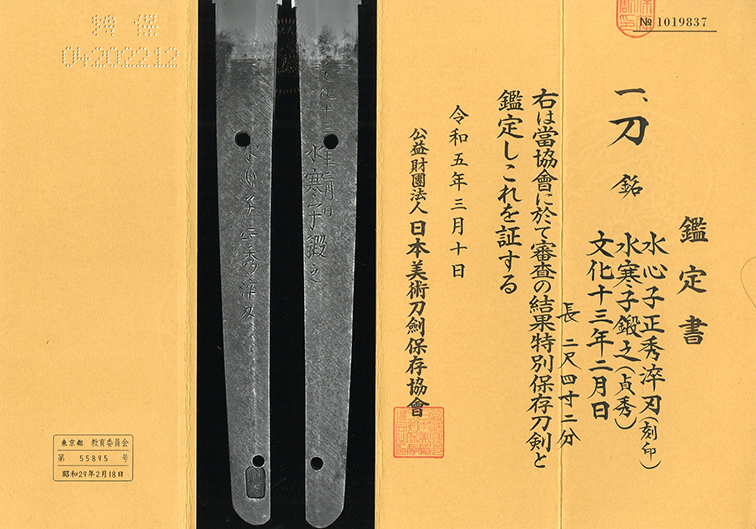 № 1019837
鑑定書
一、刀 銘
水心子正秀淬刃(刻印)
水寒子鍛之(貞秀)
文化十三年二月日
長 二尺四寸二分
右は當協會に於て審査の結果特別保存刀剣と
鑑定しこれを証する
令和五年三月十日
公益財團法人 日本美術刀劍保存協會
水寒子鍛之
水心子正秀淬刃
特 保
04202212
東京都 教育委員会
第 55895 号
昭和29年2月18日